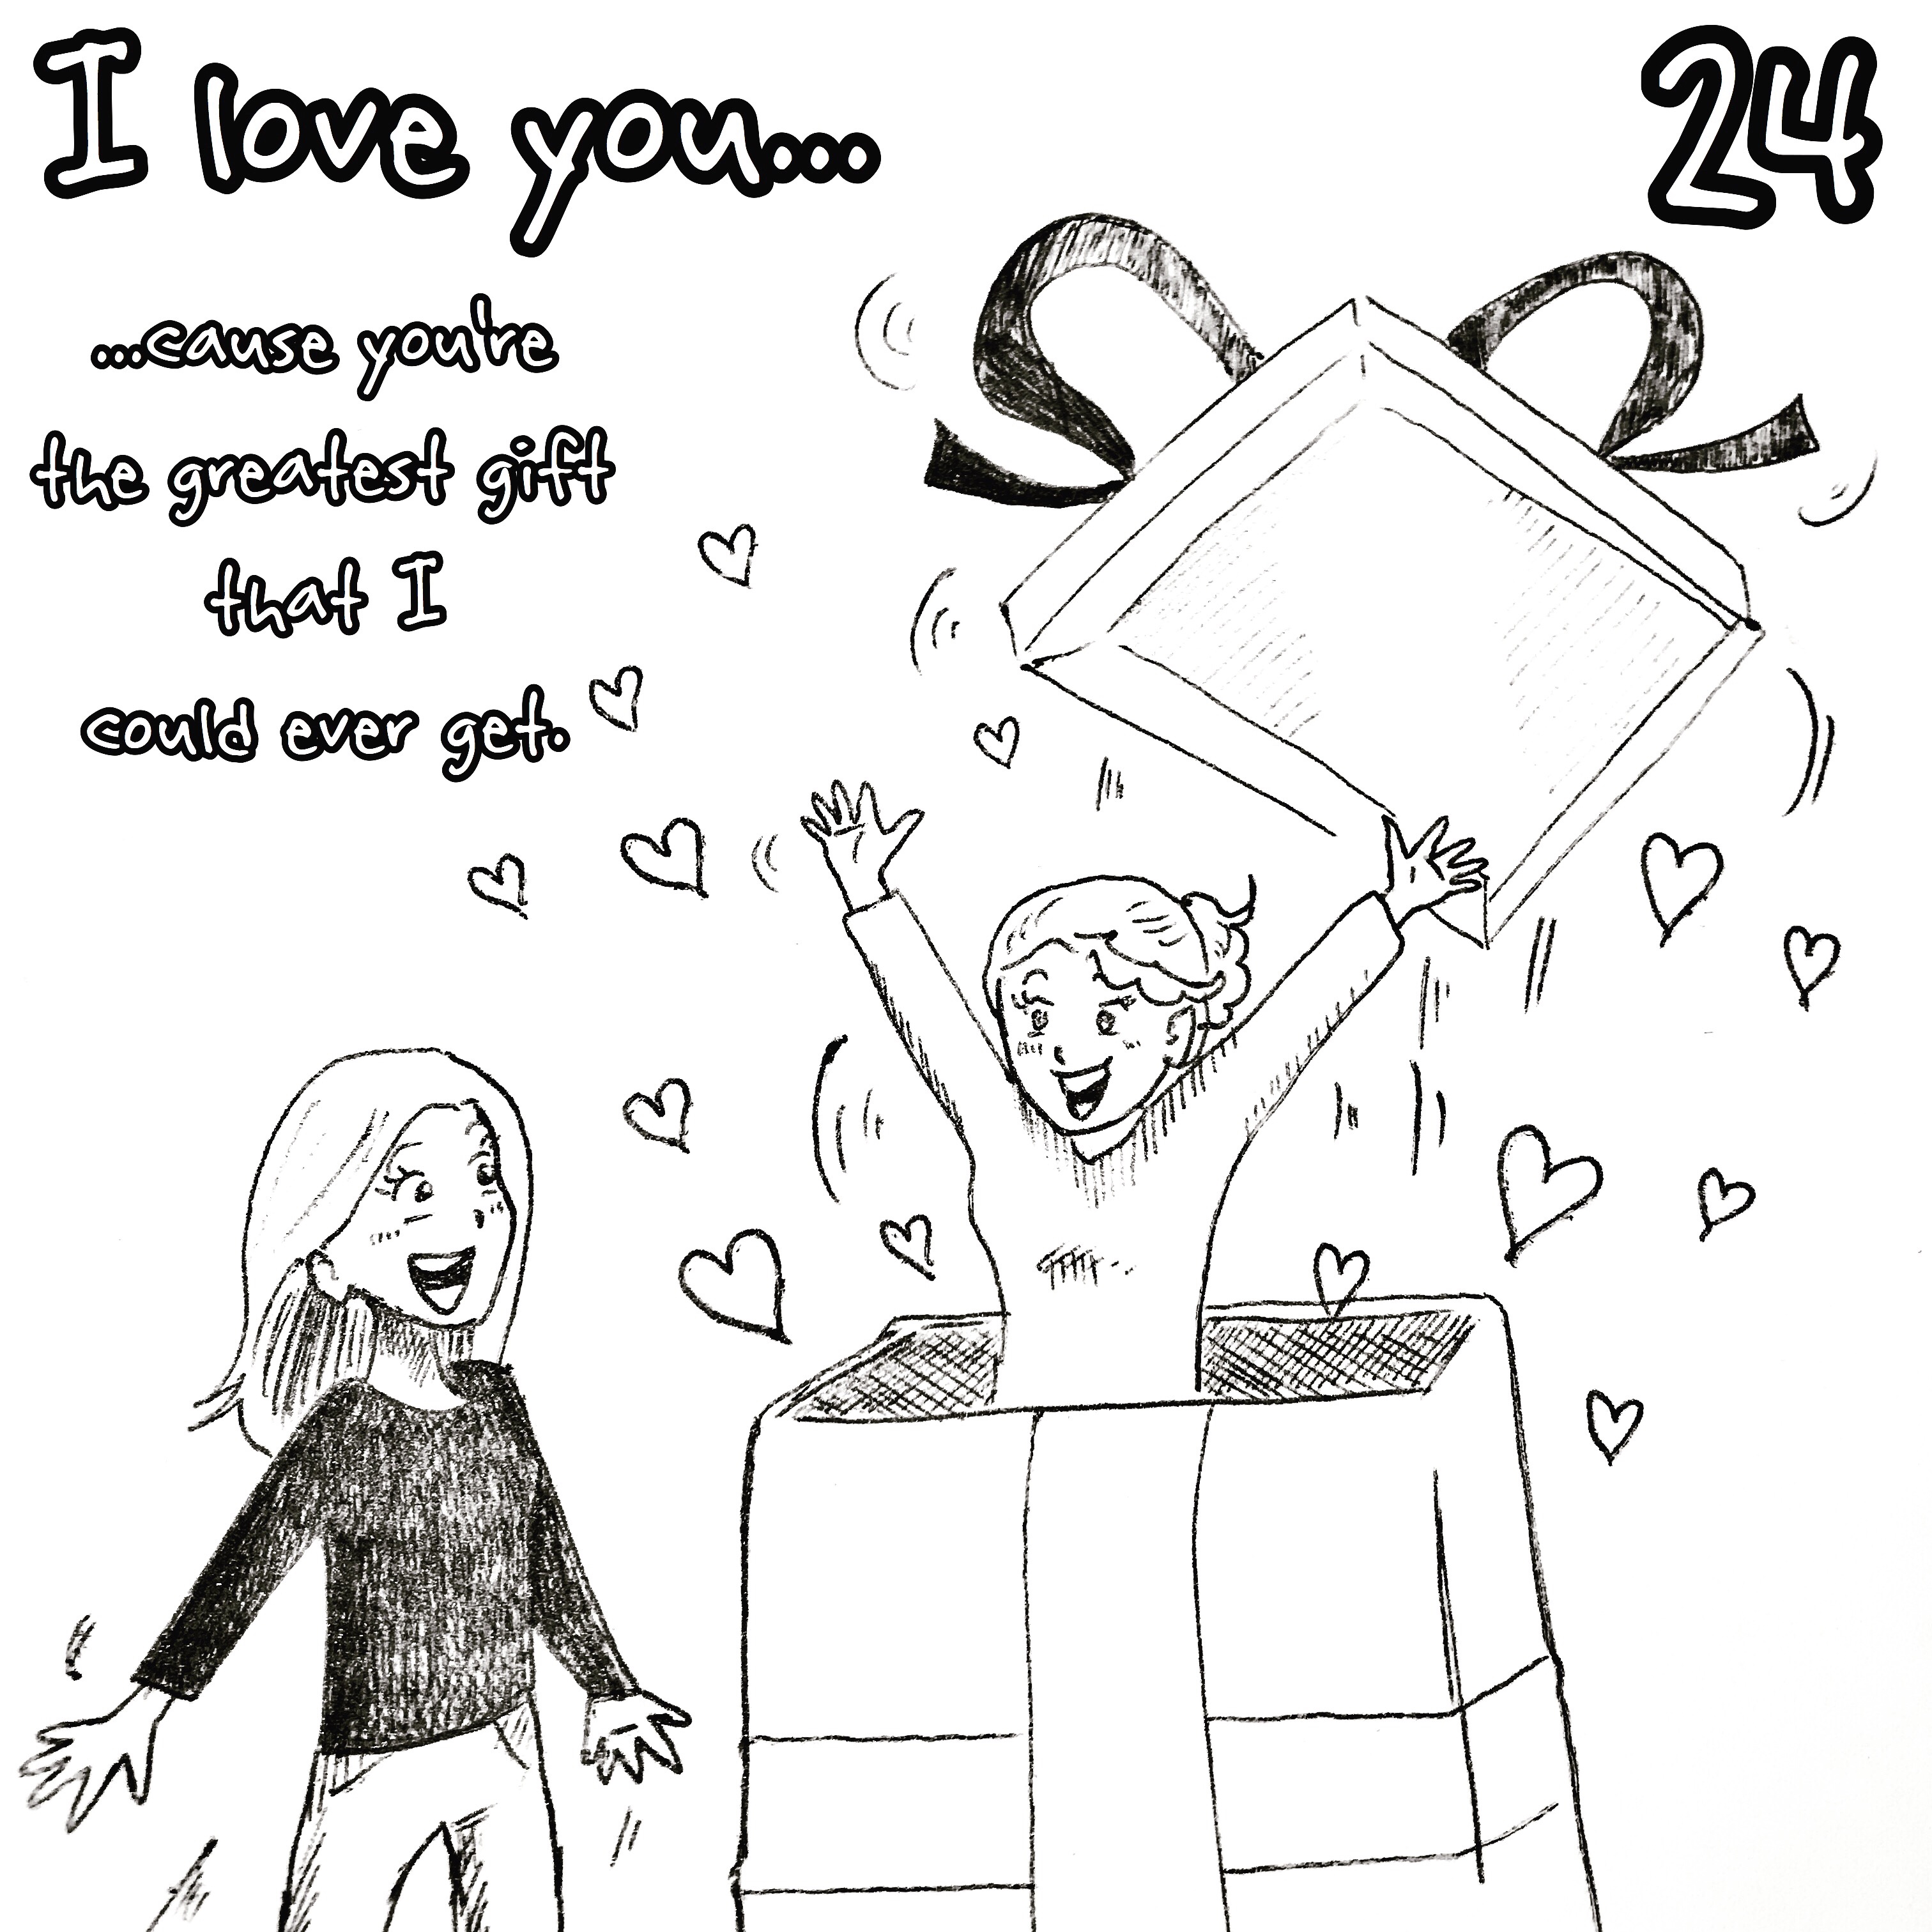 I love you...
24
...cause you're
the greatest gift
that I
could ever get.